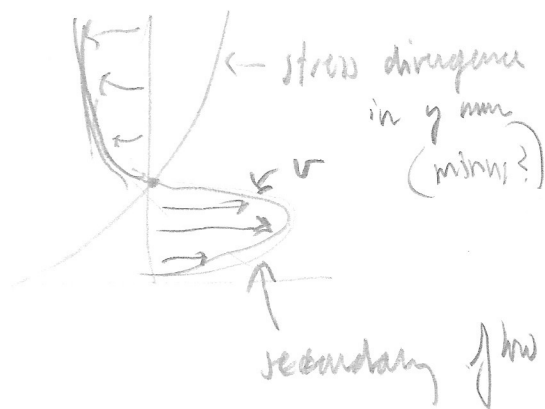 ← stress divergence
in y mom
(minus?)
v
secondary flow